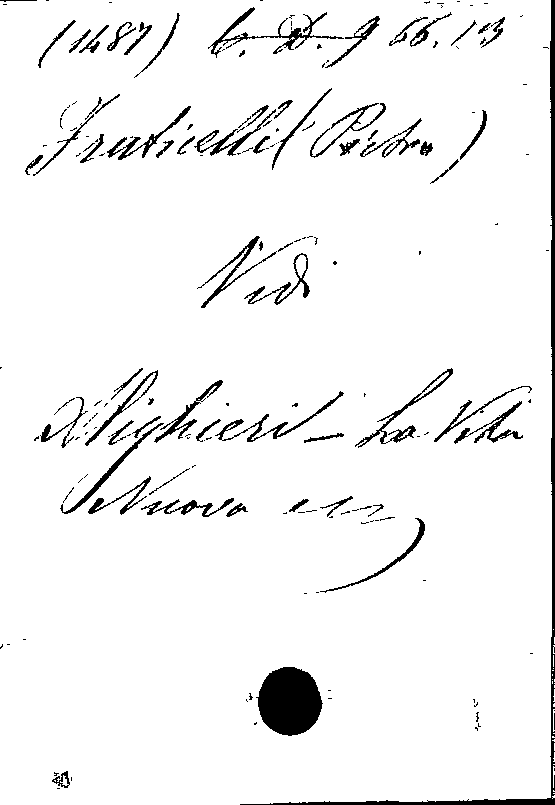 (1487) C. D. 9 66.13
Fraticelli (Pietro)
Vedi
Alighieri - La Vita
Nuova ecc